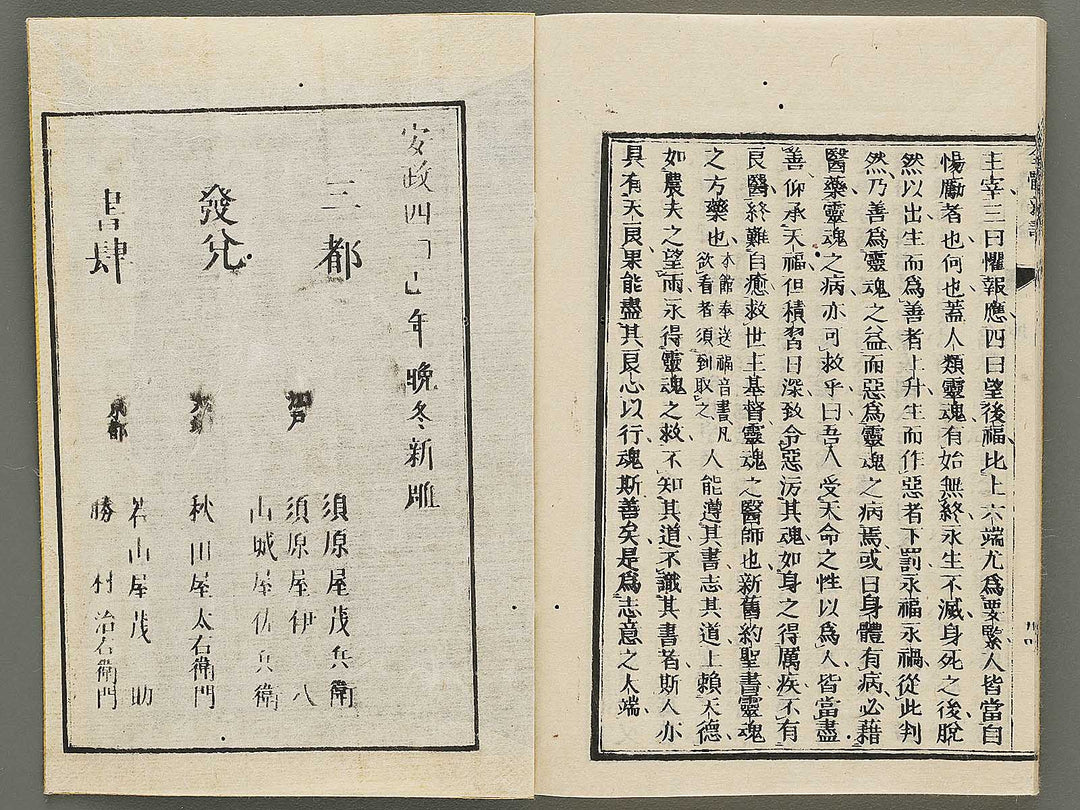 主宰三曰懼報應四曰望後福比上六端尤爲要緊人皆當自
惕勵者也何也蓋人類靈魂有始無終永生不滅身死之後脫
然以出生而爲善者上升生而作惡者下罰永福永禍從此判
然乃善爲靈魂之益而惡爲靈魂之病焉或曰身體有病必藉
醫藥靈魂之病亦可救乎曰吾人受天命之性以爲人皆當盡
善仰承天福但積習日深致令惡污其魂如身之得厲疾不有
良醫終難自癒救世主基督靈魂之醫師也新舊約聖書靈魂
之方藥也本館奉送福音書凡欲看者須到取之人能遵其書志其道上賴天德
如農夫之望雨永得靈魂之救不知其道不識其書者斯人亦
具有天良果能盡其良心以行魂斯善矣是爲志意之大端
安政四丁巳年晩冬新雕
三都
發兌
書肆
江戸
須原屋茂兵衛
須原屋伊八
山城屋佐兵衛
秋田屋太右衛門
京都
若山屋茂助
勝村治右衛門